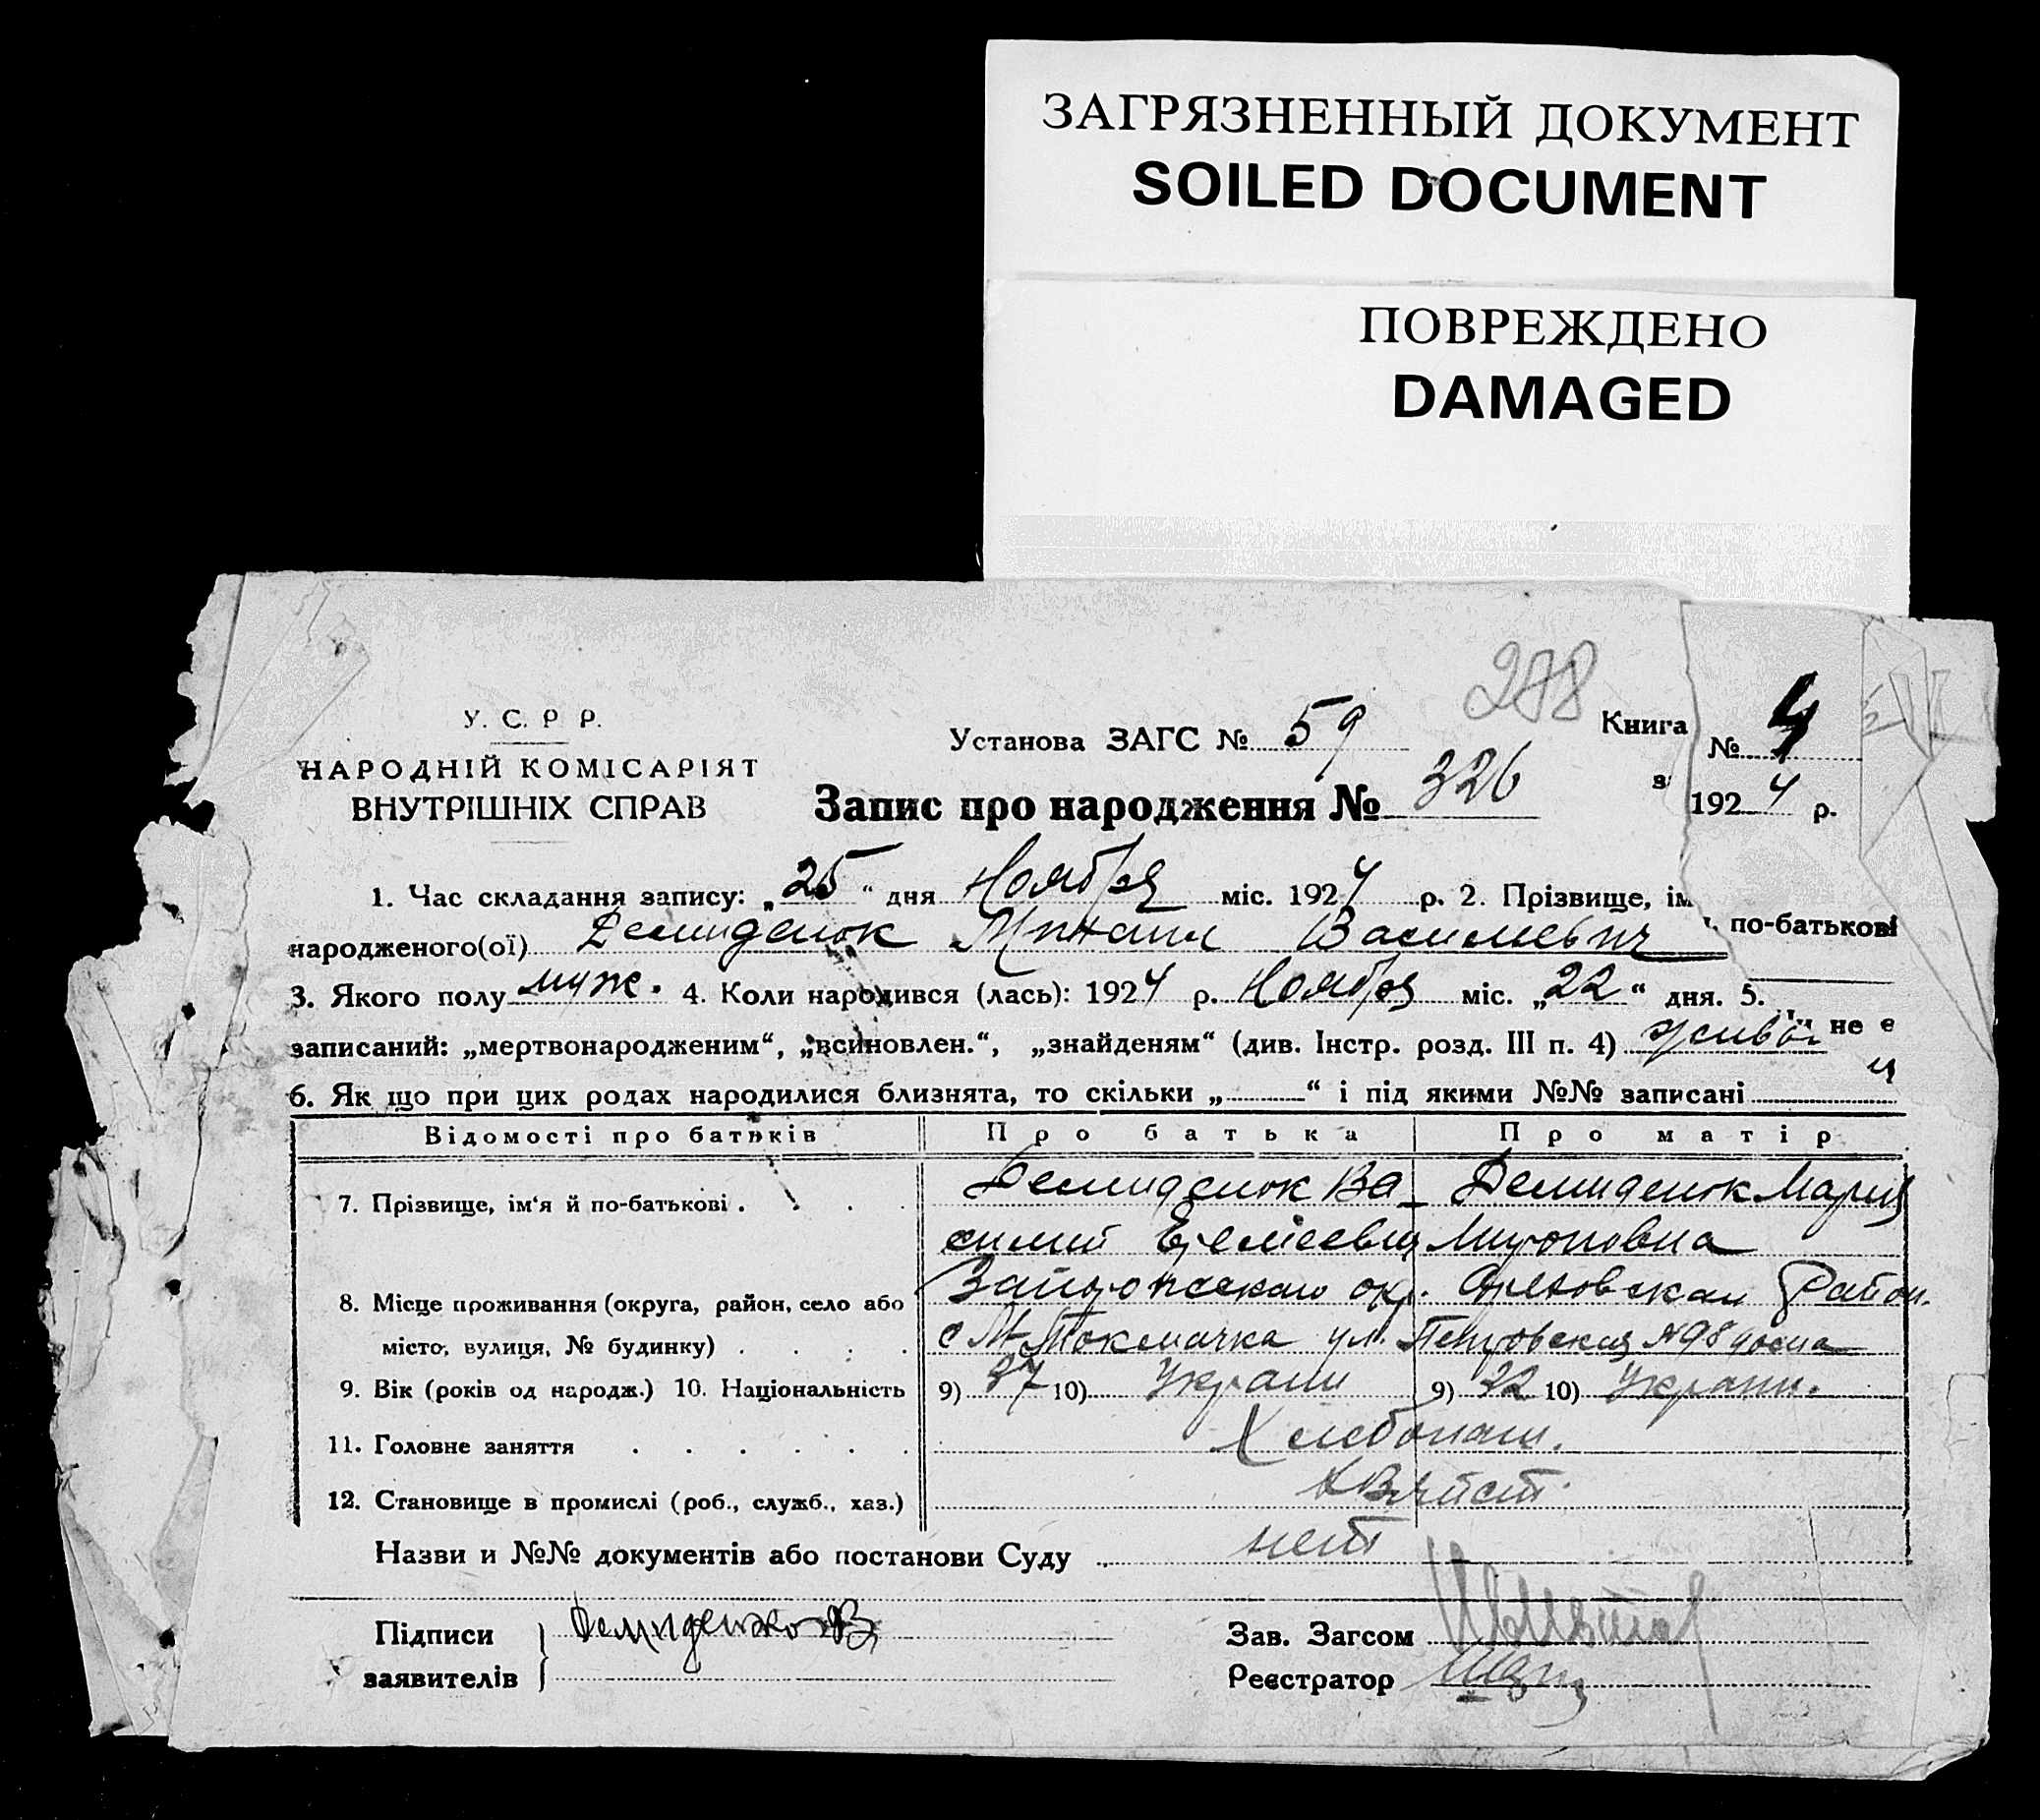 ЗАГРЯЗНЕННЫЙ ДОКУМЕНТ
SOILED DOCUMENT
ПОВРЕЖДЕНО
DAMAGED
288
У. С. Р Р.
Установа ЗАГС № 59
Книга № 4
НАРОДНІЙ КОМІСАРІЯТ
ВНУТРІШНІХ СПРАВ
Запис про народження № 326
з 1924 р.
1. Час складання запису: „25“ дня Ноября міс. 1924 р. 2. Прізвище, ім по-батькові
народженого(ої) Демиденок Михаил Васильевич
3. Якого полу муж. 4. Коли народився (лась): 1924 р. Ноября міс. „22“ дня. 5. чи не є
записаний: „мертвонародженим“, „всиновлен.“, „знайденям“ (див. Інстр. розд. III п. 4) живой
6. Як що при цих родах народилися близнята, то скільки „ “ і під якими №№ записані
Відомості про батьків Про батька Про матір
7. Прізвище, ім‘я й по-батькові . . . . Демиденок Ва- Демиденок Мария
силий Мироновна
8. Місце проживання (округа, район, село або Запорожскаго окр. Ореховскаи Район.
місто, вулиця, № будинку) . . . . с М-Токмачка ул. Петровская №98 дома
9. Вік (років од народж.) 10. Національність 9) 37 10) Украин 9) 32 10) Украин.
11. Головне заняття . . . . . . Хлебопаш.
12. Становище в промислі (роб., служб., хаз.)
Назви и №№ документів або постанови Суду .. нет
Підписи
заявителів
Демиденко В
Зав. Загсом
Реєстратор